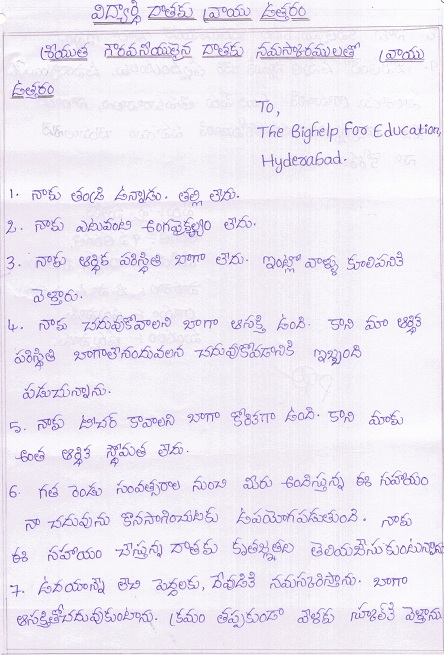 విద్యార్థి దాతకు వ్రాయు ఉత్తరం
శ్రీయుత గౌరవనీయులైన దాతకు నమస్కారములతో వ్రాయు
ఉత్తరం
To,
The Bighelp For Education,
Hyderabad.
1. నాకు తండ్రి ఉన్నాడు. తల్లి లేదు.
2. నాకు ఎటువంటి అంగవైకల్యం లేదు.
3. నాకు ఆర్థిక పరిస్థితి బాగా లేదు. ఇంట్లో వాళ్ళు కూలిపనికి
వెళ్తారు.
4. నాకు చదువుకోవాలని బాగా ఆసక్తి ఉంది. కాని మా ఆర్థిక
పరిస్థితి బాగాలేనందువలన చదువుకోవడానికి ఇబ్బంది
పడుచున్నాను.
5. నాకు టీచర్ కావాలని బాగా కోరికగా ఉంది. కాని మాకు
అంత ఆర్థిక స్థోమత లేదు.
6. గత రెండు సంవత్సరాల నుంచి మీరు అందిస్తున్న ఈ సహాయం
నా చదువును కొనసాగించుటకు ఉపయోగపడుతుంది. నాకు
ఈ సహాయం చేస్తున్న దాతకు కృతజ్ఞతలు తెలియచేసుకుంటున్నాను
7. ఉదయాన్నే లేచి పెద్దలకు, దేవుడికి నమస్కరిస్తాను. బాగా
ఆసక్తితో చదువుకుంటాను. క్రమం తప్పకుండా వేళకు స్కూల్‌కి వెళ్తాను